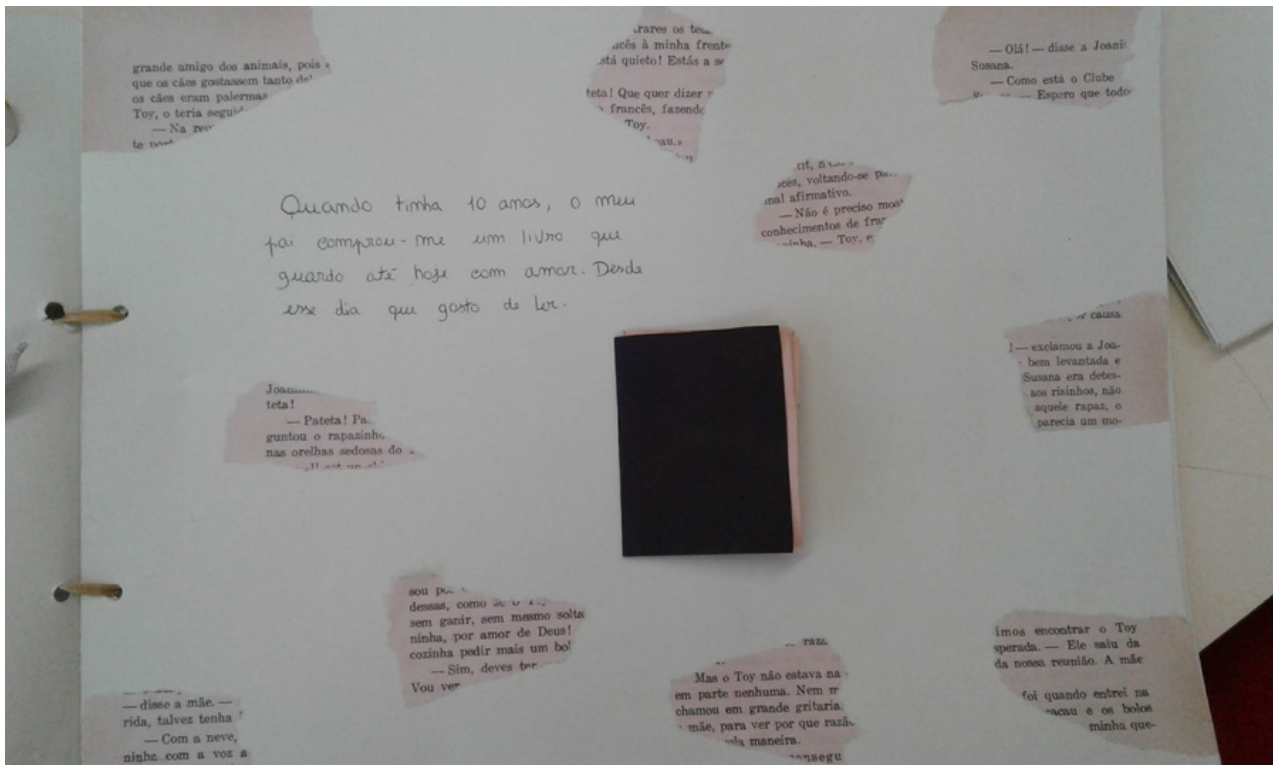 grande amigo dos animais, pois
que os cães gostassem tanto
os cães eram palermas
Toy, o teria
— Na
à minha frente
quieto! Estás a
Que quer dizer
francês, fazendo
Toy.
— Olá! — disse a
Susana.
— Como está o Clube
— Espero que
voltando-se
afirmativo.
— Não é preciso
conhecimentos de
— Toy,
Quando tinha 10 anos, o meu
pai comprou-me um livro que
guardo até hoje com amor. Desde
esse dia que gosto de ler.
causa
— exclamou a Joa-
bem levantada e
Susana era detes-
aos risinhos, não
aquele rapaz, o
parecia um mo-
teta!
— Pateta!
guntou o rapazinho
nas orelhas sedosas do
sou
dessas, como
sem ganir, sem mesmo solta
ninha, por amor de Deus!
cozinha pedir mais um
— Sim, deves
Vou
Mas o Toy não estava na
em parte nenhuma. Nem
chamou em grande gritaria.
mãe, para ver por que
maneira.
imos encontrar o Toy
sperada. — Ele saiu da
da nossa reunião. A mãe
foi quando entrei na
e os bolos
minha que-
— disse a mãe. —
rida, talvez tenha
— Com a neve,
ninha com a voz a